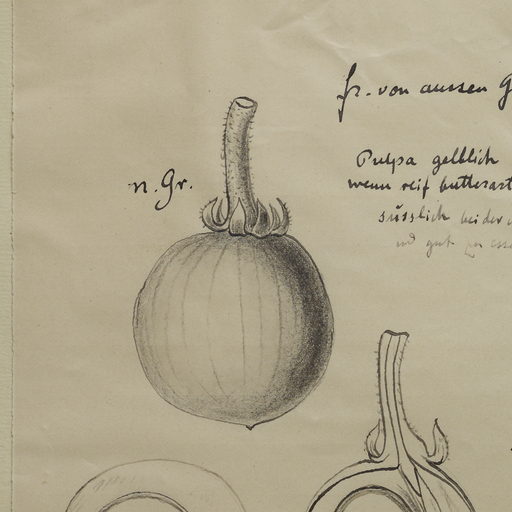 fr. von aussen G
n. Gr.
Pulpa gelblich
wenn reif butterart
süsslich bei der
und gut zu esse